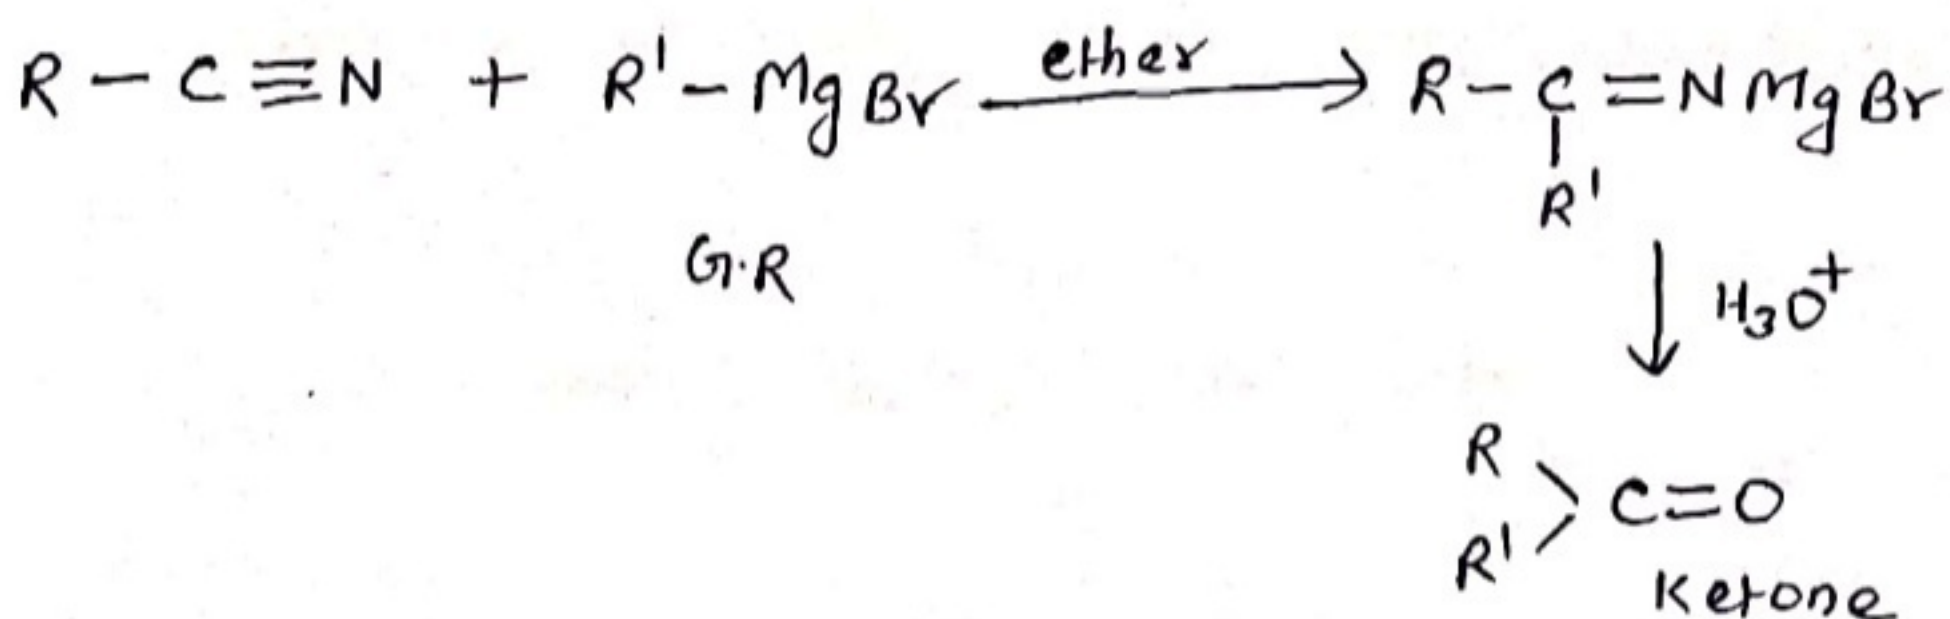 R - C ≡ N + R' - MgBr ether → R - C = NMgBr
R'
G.R
↓ H₃O⁺
R
> C = O
R'
Ketone